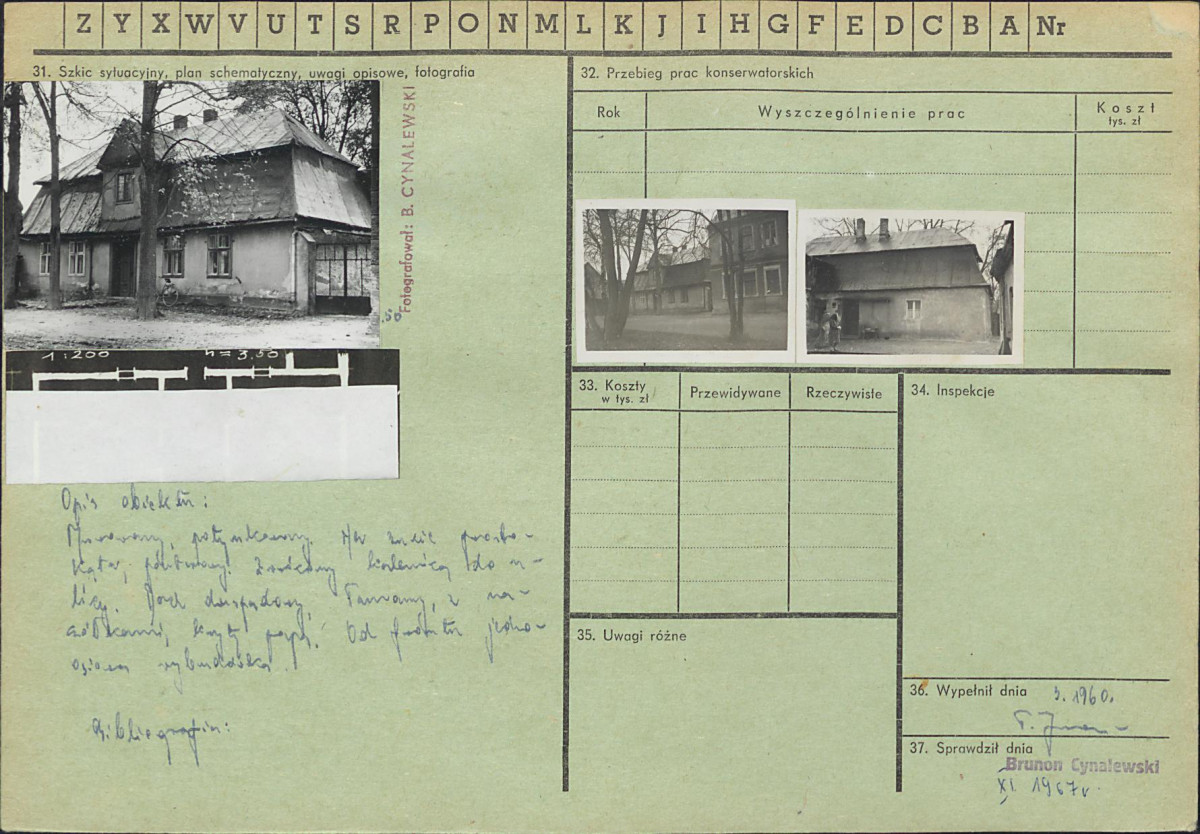 Z Y X W V U T S R P O N M L K J I H G F E D C B A Nr
31. Szkic sytuacyjny, plan schematyczny, uwagi opisowe, fotografia
Fotografował: B. CYNALEWSKI
1:200 h = 3,50
Opis obiektu:
Murowany, potynkowany. Na rzucie prosto-
kąta, piętrowy. Zwrócony kalenicą do u-
licy. Dach dwuspadowy, łamany, z na-
czółkami, kryty papą. Od frontu jedno-
osiowa wybudówka.
Bibliografia:
32. Przebieg prac konserwatorskich
Rok Wyszczególnienie prac Koszt
tys. zł
33. Koszty Przewidywane Rzeczywiste
w tys. zł
34. Inspekcje
35. Uwagi różne
36. Wypełnił dnia 3. 1960.
37. Sprawdził dnia
Brunon Cynalewski
XI. 1967r.